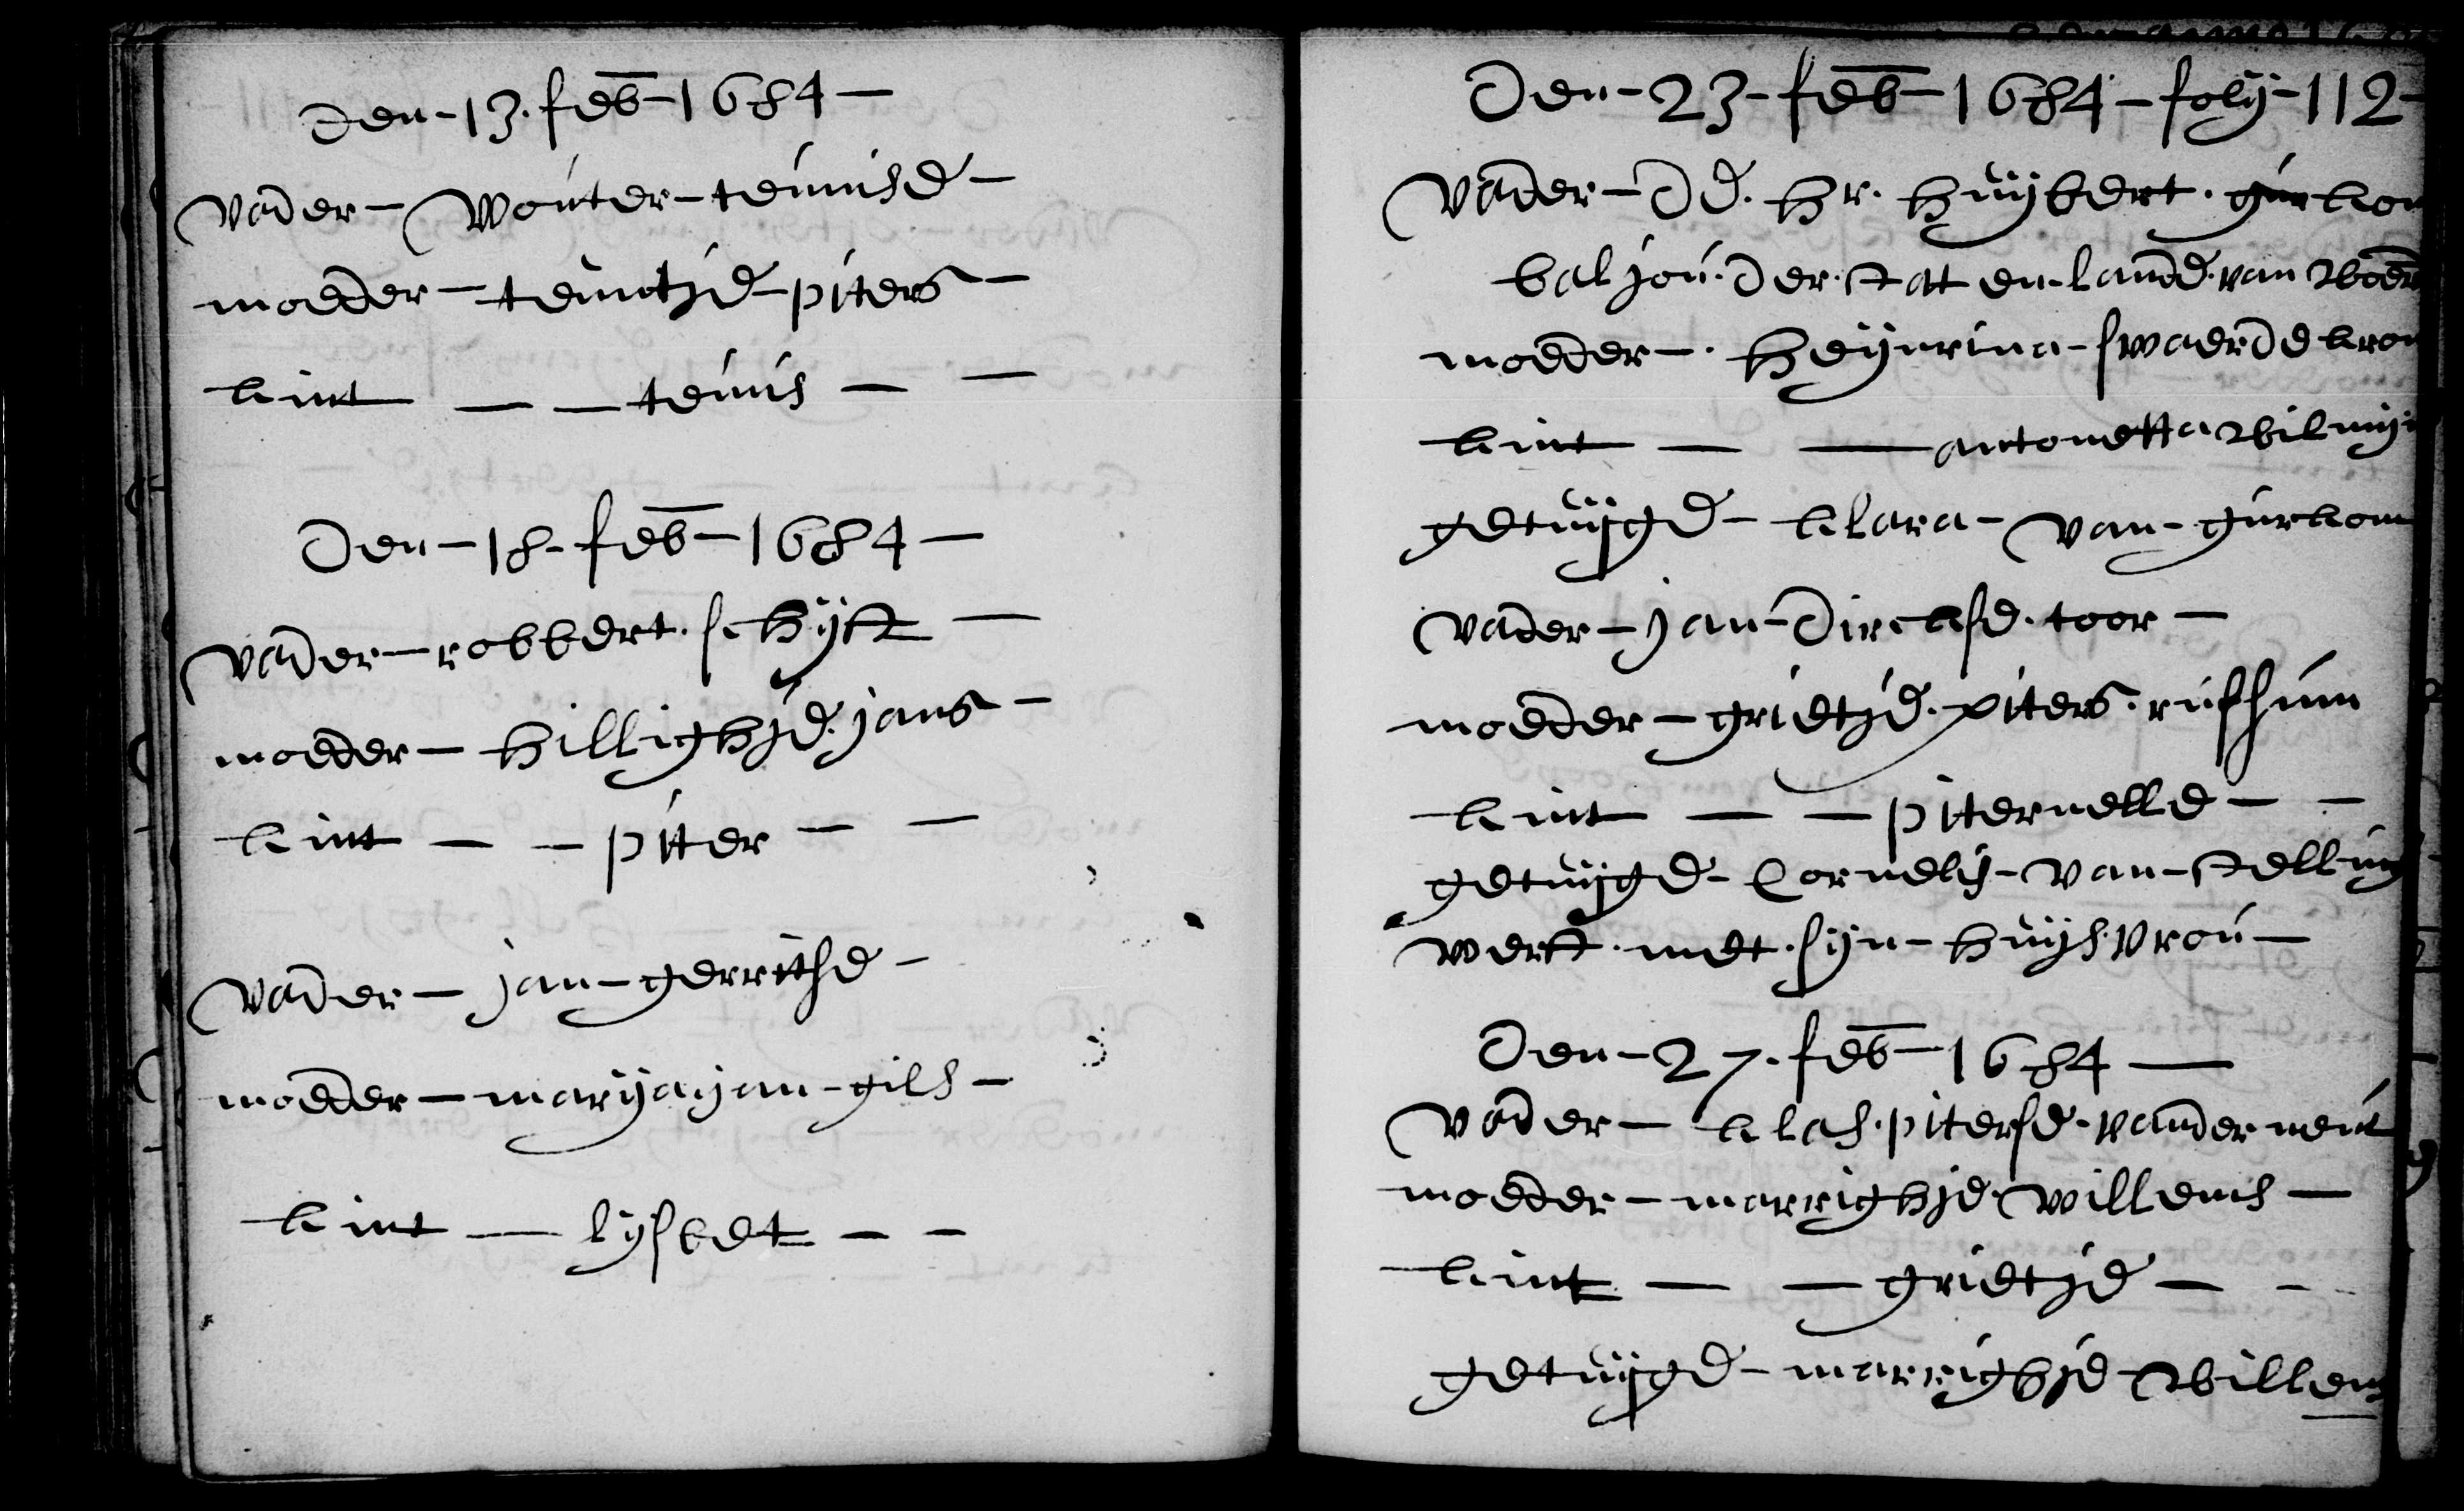 den - 13. feb - 1684 -
vader - wouter - teunise -
moeder - teuntje - piters -
kint - - teunis - -
den - 18 - feb - 1684 -
vader - robbert. schijft -
moeder - hillighje. jans -
kint - - piter - -
vader - jan - gerritse -
moeder - marija jan - gils -
kint - lijsbet - -
den - 23 - feb - 1684 - folij - 112 -
vader - de. hr. huijbert. gur kom
baljou. der. stat en lande. van woer
moeder -. heijnrina - swaerde kroo
kint - - antonetta wilmij
getuijge - klara - van - gurkom
vader - jan - dirckse. toor -
moeder - grietje. piters. rushum
kint - - piternelle - -
getuijge - Cornelis - van - stelling
werft. met. sijn - huijs. vrou -
den - 27. feb - 1684 -
vader - klas. piterse. vander neut
moeder - marrighje willems -
kint - - grietje - -
getuijge - marrighje willems